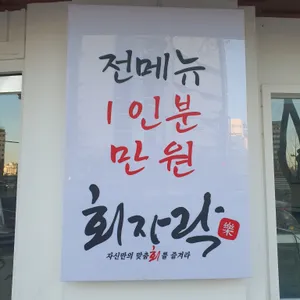 전메뉴
1인분
만원
회자락 樂
자신만의 맞춤회를 즐겨라